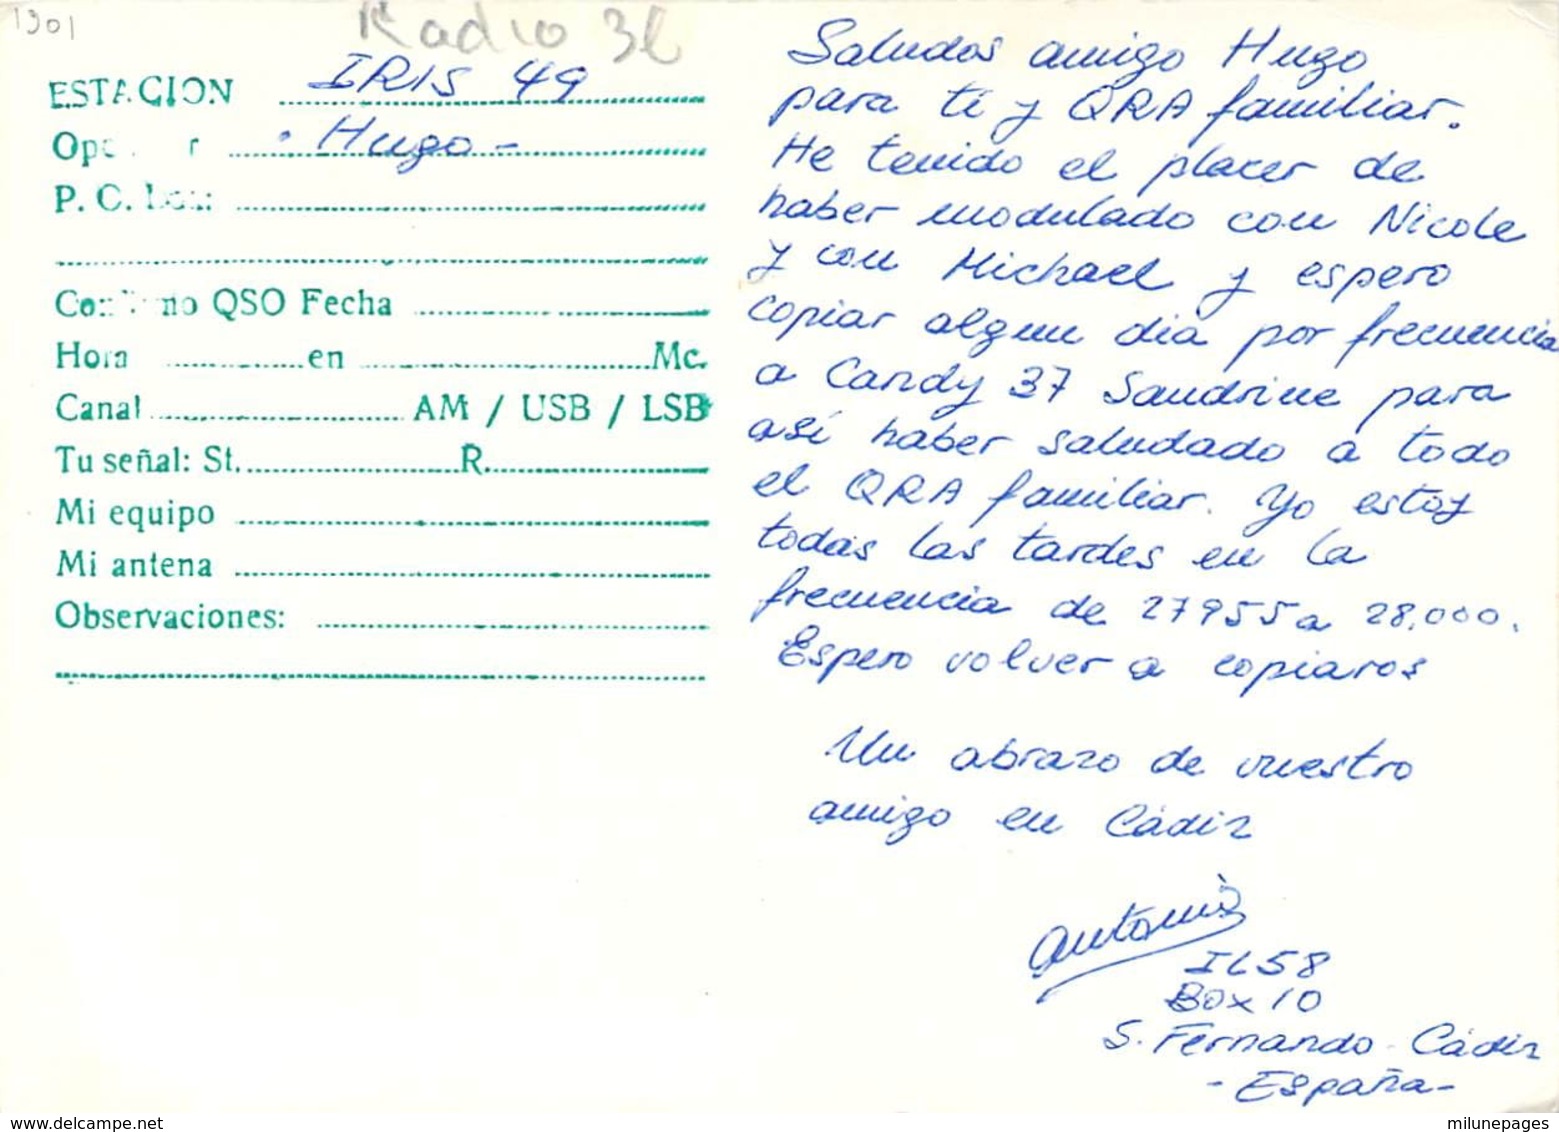 1301
Radio 3l
ESTACION IRIS 49
Hugo -
P. O.
QSO Fecha
Hora en Mc.
Canal AM / USB / LSB
Tu señal: St. R.
Mi equipo
Mi antena
Observaciones:
Saludos amigo Hugo
para ti y QRA familiar.
He tenido el placer de
haber modulado con Nicole
y con Michael y espero
copiar algun dia por frecuencia
a Candy 37 Sandrine para
así haber saludado a todo
el QRA familiar. Yo estoy
todas las tardes en la
frecuencia de 27955 a 28.000.
Espero volver a copiaros
Un abrazo de vuestro
amigo en Cádiz
Antonio
IL58
Box 10
S. Fernando - Cádiz
- España -
milunepages